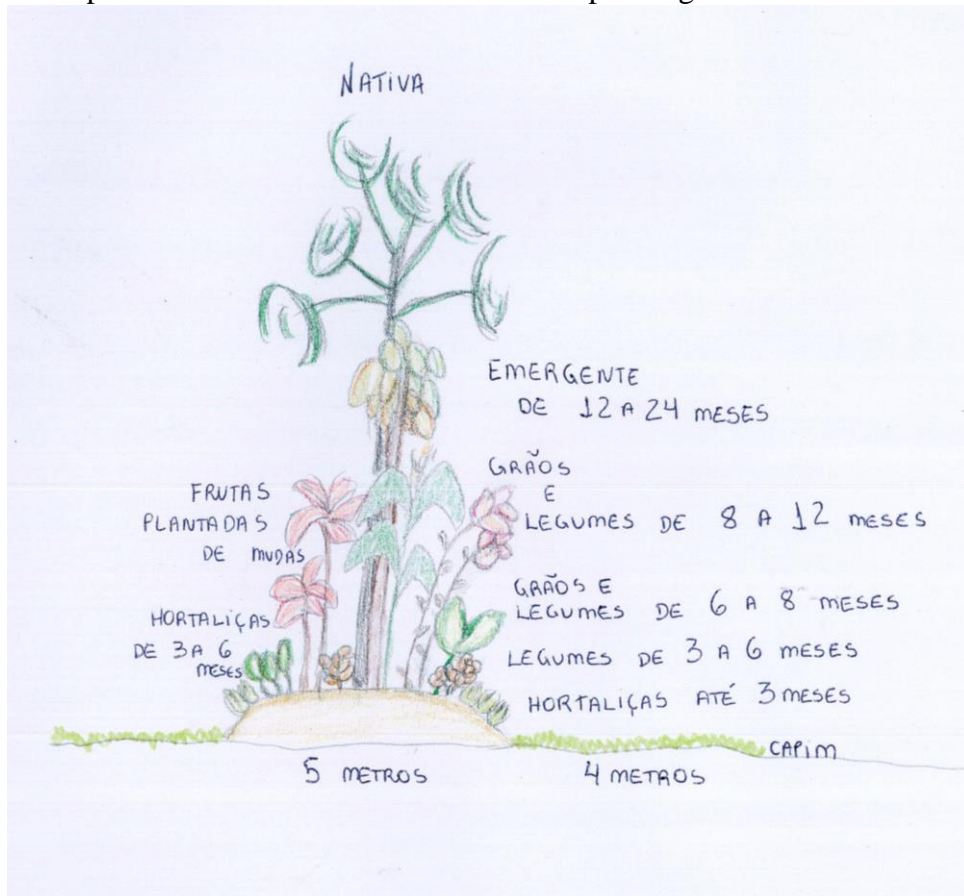 NATIVA
EMERGENTE
DE 12 A 24 MESES
GRÃOS
E
LEGUMES DE 8 A 12 MESES
FRUTAS
PLANTADAS
DE MUDAS
GRÃOS E
LEGUMES DE 6 A 8 MESES
HORTALIÇAS
DE 3 A 6
MESES
LEGUMES DE 3 A 6 MESES
HORTALIÇAS ATÉ 3 MESES
CAPIM
5 METROS
4 METROS